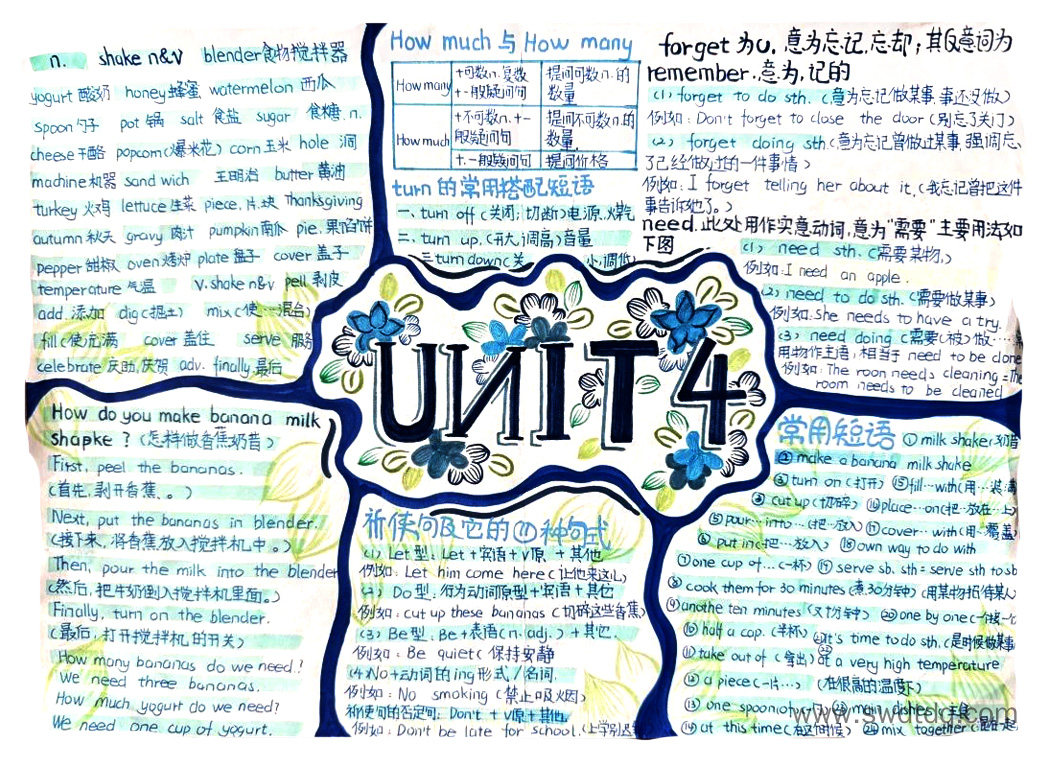 n. shake n&v blender食物搅拌器
yogurt 酸奶 honey 蜂蜜 watermelon 西瓜
spoon 勺子 pot 锅 salt 食盐 sugar 食糖.n.
cheese 干酪 popcorn(爆米花) corn 玉米 hole 洞
machine 机器 sand wich 王明治 butter 黄油
turkey 火鸡 lettuce 生菜 piece.片.块 Thanksgiving
autumn 秋天 gravy 肉汁 pumpkin 南瓜 pie.果馅饼
pepper 甜椒 oven 烤炉 plate 盘子 cover 盖子
temperature 气温 v.shake n&v peel 剥皮
add 添加 dig(掘土) mix(使…混合)
fill(使充满 cover 盖住 serve 服务
celebrate 庆助,庆贺 adv. finally.最后
How much 与 How many
How many +可数n.复数 +一般疑问句 提问可数n.的数量
How much +不可数n.+一般疑问句 提问不可数n.的数量.
+.一般疑问句 提问价格
turn 的常用搭配短语
一、turn off(关闭;切断)电源.煤气
二、turn up.(开大,调高)音量
三 turn down(关 小,调低)
forget 为v. 意为忘记.忘却;其反意词为
remember.意为,记的
(1) forget to do sth.(意为忘记做某事.事还没做)
例如:Don't forget to close the door(别忘了关门)
(2) forget doing sth.(意为忘记曾做过某事,强调忘
了已经做过的一件事情)
例如:I forget telling her about it.(我忘记曾把这件
事告诉她了。)
need.此处用作实意动词,意为"需要"主要用法如
下图
(1) need sth.(需要某物,)
例如:I need an apple.
(2) need to do sth.(需要做某事)
例如:she needs to have a try.
(3) need doing(需要(被)做…
用物作主语,相当于 need to be done
例如:The roon needs cleaning=The
room needs to be cleaned
UNIT 4
How do you make banana milk
shapke ?(怎样做香蕉奶昔)
First, peel the bananas.
(首先,剥开香蕉。。)
Next, put the bananas in blender.
(接下来,将香蕉放入搅拌机中。)
Then, pour the milk into the blender
(然后,把牛奶倒入搅拌机里面。)
Finally, turn on the blender.
(最后,打开搅拌机的开关)
How many bananas do we need.?
We need three bananas.
How much yogurt do we need?
We need one cup of yogurt.
祈使句及它的⑪种句式
(1) Let型:Let+宾语+v原.+其他
例如:Let him come here(让他来这儿)
(2) Do型:行为动词原型+宾语+其它
例如:cut up these bananas(切碎这些香蕉)
(3) Be型:Be+表语(n.adj.)+其它.
例如:Be quiet(保持安静
(4.No+动词的ing形式/名词.
例如:No smoking(禁止吸烟)
祈使句的否定句:Don't+v原+其他
例如:Don't be late for school.(上学别迟
常用短语 ①milk shake(奶昔
②make a banana milk shake
③turn on(打开) ⑤fill…with(用…装满
cut up(切碎) ⑯place…on(把…放在…上)
⑤pour…into…(把…放入) ⑰cover…with(用…覆盖)
⑥put in(把…放入) ⑱own way to do with
⑦one cup of…(一杯) ⑲serve sb. sth=serve sth to sb
⑧cook them for 30 minutes(煮30分钟)(用某物招待某人)
⑨anothe ten minutes(又十分钟) ⑳one by one(一个接一个
⑩half a cap.(半杯) it's time to do sth.(是时候做某事
⑪take out of(拿出) at a very high temperature
⑫a piece(一片…) (在很高的温度下)
⑬one spoon of main dishes 主食
⑭at this time(在这时候) mix together
www.swdtdq.com